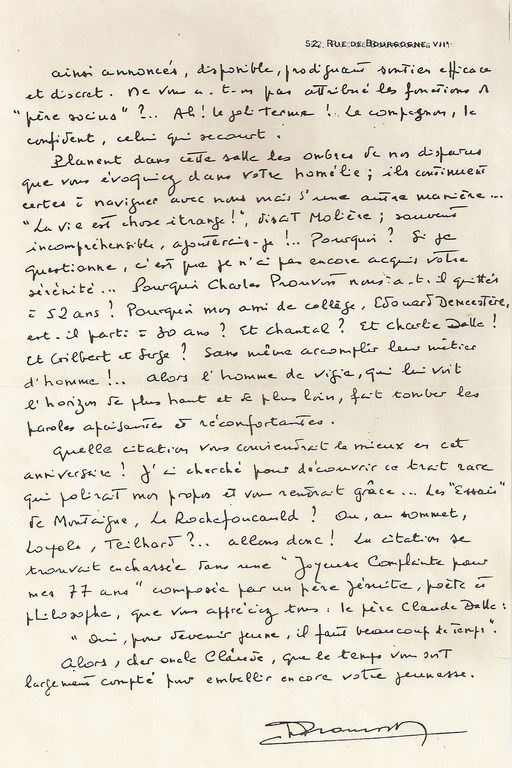 52, RUE DE BOURGOGNE, VIIe
ainsi annoncés, disponible, prodiguant soutien efficace
et discret. Ne vous a-t-on pas attribué les fonctions de
"père socius" ?.. Ah ! le joli terme !.. Le compagnon, le
confident, celui qui secourt.
Planent dans cette salle les ombres de nos disparus
que vous évoquiez dans votre homélie ; ils continuent
certes à naviguer avec nous mais d'une autre manière...
"La vie est chose étrange !", disait Molière ; souvent
incompréhensible, ajouterais-je !.. Pourquoi ? Si je
questionne, c'est que je n'ai pas encore acquis votre
sérénité... Pourquoi Charles Prouvost nous a-t-il quittés
à 52 ans ? Pourquoi mon ami de collège, Edouard Demeestère,
est-il parti à 30 ans ? Et Chantal ? Et Charlie Dalle !
Et Gilbert et Serge ? Sans même accomplir leur métier
d'homme !.. Alors l'homme de vigie, qui lui voit
l'horizon de plus haut et de plus loin, fait tomber les
paroles apaisantes et réconfortantes.
Quelle citation vous conviendrait le mieux en cet
anniversaire ! J'ai cherché pour découvrir ce trait rare
qui polirait mon propos et vous rendrait grâce... Les "Essais"
de Montaigne, La Rochefoucauld ? Ou, au sommet,
Loyola, Teilhard ?.. allons donc ! La citation se
trouvait enchassée dans une "Joyeuse Complainte pour
mes 77 ans" composée par un père jésuite, poète et
philosophe, que vous appréciez tous : le père Claude Dalle :
"Oui, pour devenir jeune, il faut beaucoup de temps".
Alors, cher oncle Claude, que le temps vous soit
largement compté pour embellir encore votre jeunesse.